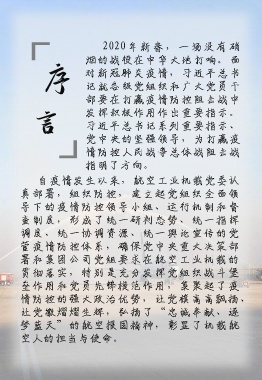 序言
2020年新春，一场没有硝
烟的战役在中华大地打响。面
对新冠肺炎疫情，习近平总书
记就各级党组织和广大党员干
部要在打赢疫情防控阻击战中
发挥积极作用作出重要指示。
习近平总书记系列重要指示、
党中央的坚强领导，为打赢疫
情防控人民战争总体战阻击战
指明了方向。
自疫情发生以来，航空工业机载党委认
真部署，组织防控，建立起党组织全面领
导下的疫情防控领导小组、运行机制和督
查制度，形成了统一研判态势、统一指挥
调度、统一协调资源、统一舆论宣传的党
管疫情防控体系，确保党中央重大决策部
署和集团公司党组要求在航空工业机载的
贯彻落实，特别是充分发挥党组织战斗堡
垒作用和党员先锋模范作用，
情防控的强大政治优势，让党旗高高飘扬、
让党徽熠熠生辉，弘扬了“忠诚奉献、逐
梦蓝天”的航空报国精神，彰显了机载航
空人的担当与使命。